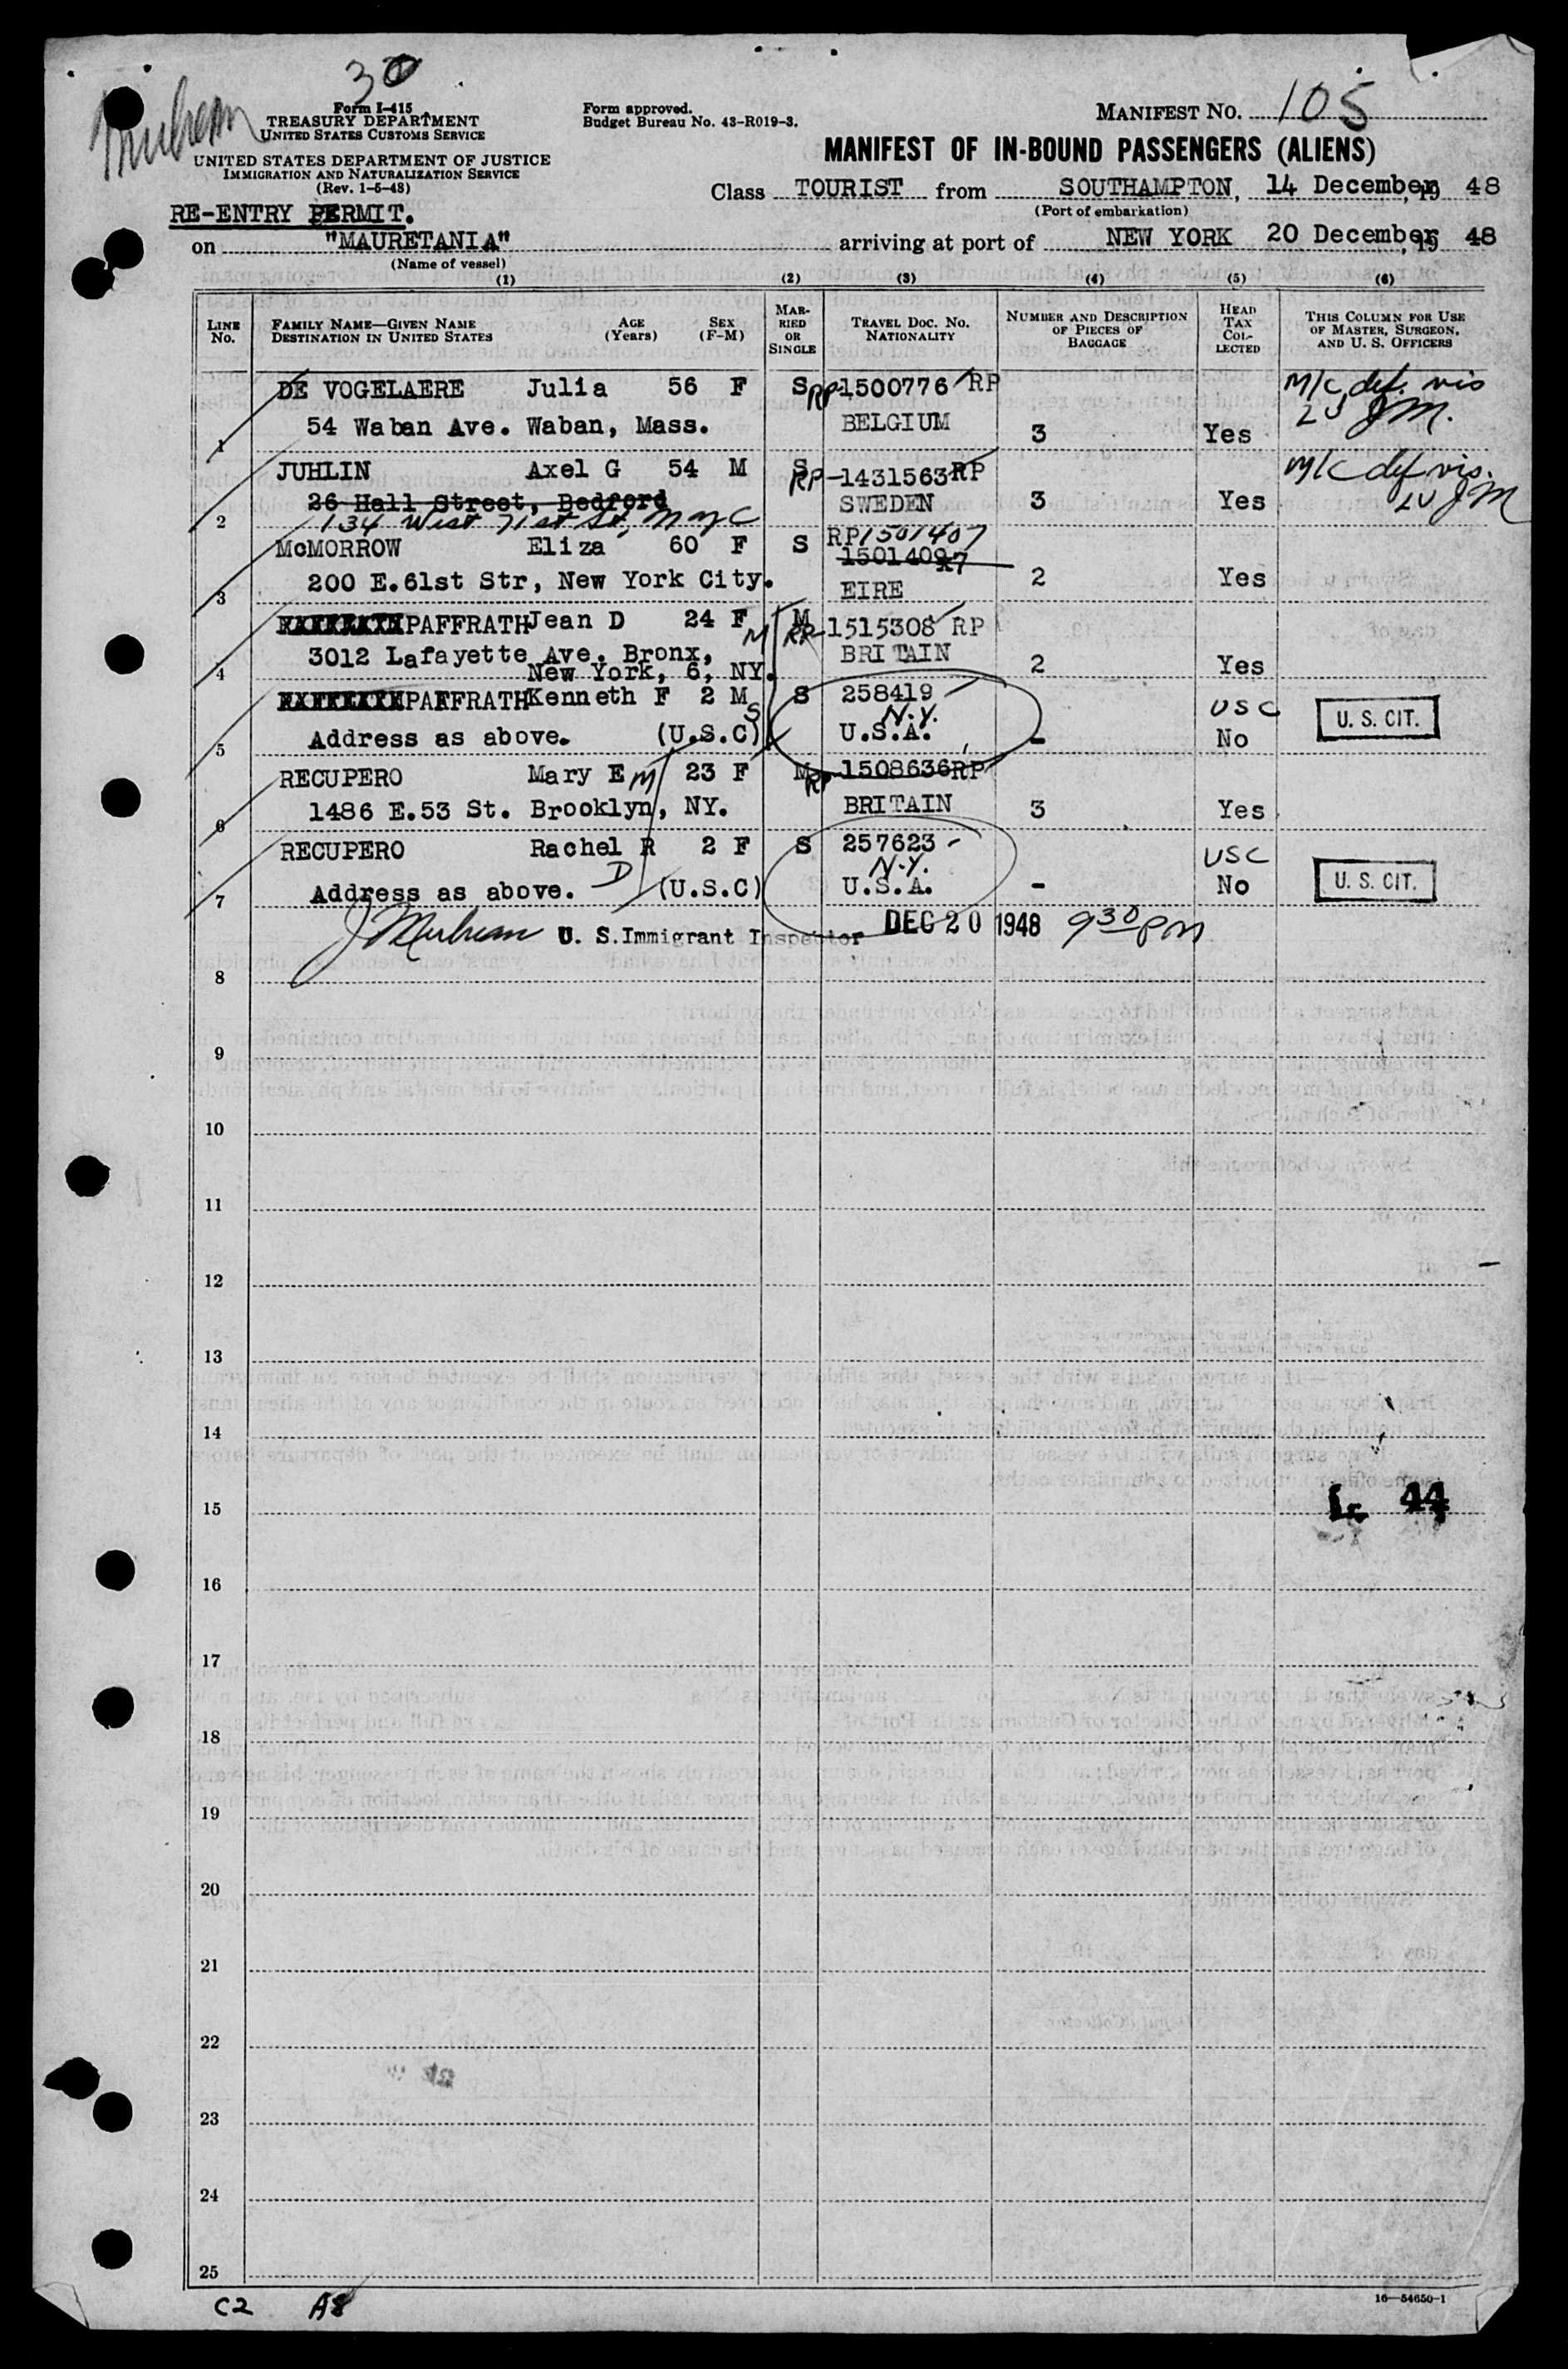 30
Form I-415
TREASURY DEPARTMENT
UNITED STATES CUSTOMS SERVICE
UNITED STATES DEPARTMENT OF JUSTICE
IMMIGRATION AND NATURALIZATION SERVICE
(Rev. 1-5-48)
RE-ENTRY PERMIT.
Form approved.
Budget Bureau No. 43-R019-3.
MANIFEST NO. 105
MANIFEST OF IN-BOUND PASSENGERS (ALIENS)
Class TOURIST from SOUTHAMPTON, 14 December, 19 48
(Port of embarkation)
on "MAURETANIA" arriving at port of NEW YORK 20 December, 19 48
(Name of vessel)
(1) (2) (3) (4) (5) (6)
LINE No. FAMILY NAME—GIVEN NAME DESTINATION IN UNITED STATES AGE (Years) SEX (F-M) MARRIED OR SINGLE TRAVEL DOC. NO. NATIONALITY NUMBER AND DESCRIPTION OF PIECES OF BAGGAGE HEAD TAX COLLECTED THIS COLUMN FOR USE OF MASTER, SURGEON, AND U. S. OFFICERS
DE VOGELAERE Julia 56 F S RP-1500776 RP M/C def. vis
1 54 Waban Ave. Waban, Mass. BELGIUM 3 Yes JM.
JUHLIN Axel G 54 M S RP-1431563 RP M/C def vis.
26 Hall Street, Bedford SWEDEN 3 Yes JM
2 134 West 71st St, N Y C
McMORROW Eliza 60 F S RP 1501407
1501409
3 200 E.61st Str, New York City. EIRE 2 Yes
PAFFRATH Jean D 24 F M M RP-1515308 RP
3012 Lafayette Ave. Bronx, BRITAIN 2 Yes
4 New York, 6, NY.
PAFFRATH Kenneth F 2 M S S 258419 USC U. S. CIT.
N.Y.
5 Address as above. (U.S.C) U.S.A. - No
RECUPERO Mary E M 23 F M RP-1508636 RP
6 1486 E.53 St. Brooklyn, NY. BRITAIN 3 Yes
RECUPERO Rachel R 2 F S 257623 - USC
N.Y.
7 Address as above. D (U.S.C) U.S.A. - No U. S. CIT.
U. S. Immigrant Inspector DEC 20 1948 9 30 pm
8
9
10
11
12
13
14
15
44
16
17
18
19
20
21
22
23
24
25
C2 A8
16—54650-1